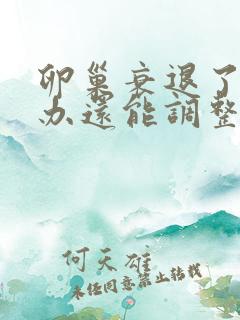 卵巢衰退了
办還能調整
何天雄
未经同意禁止转载